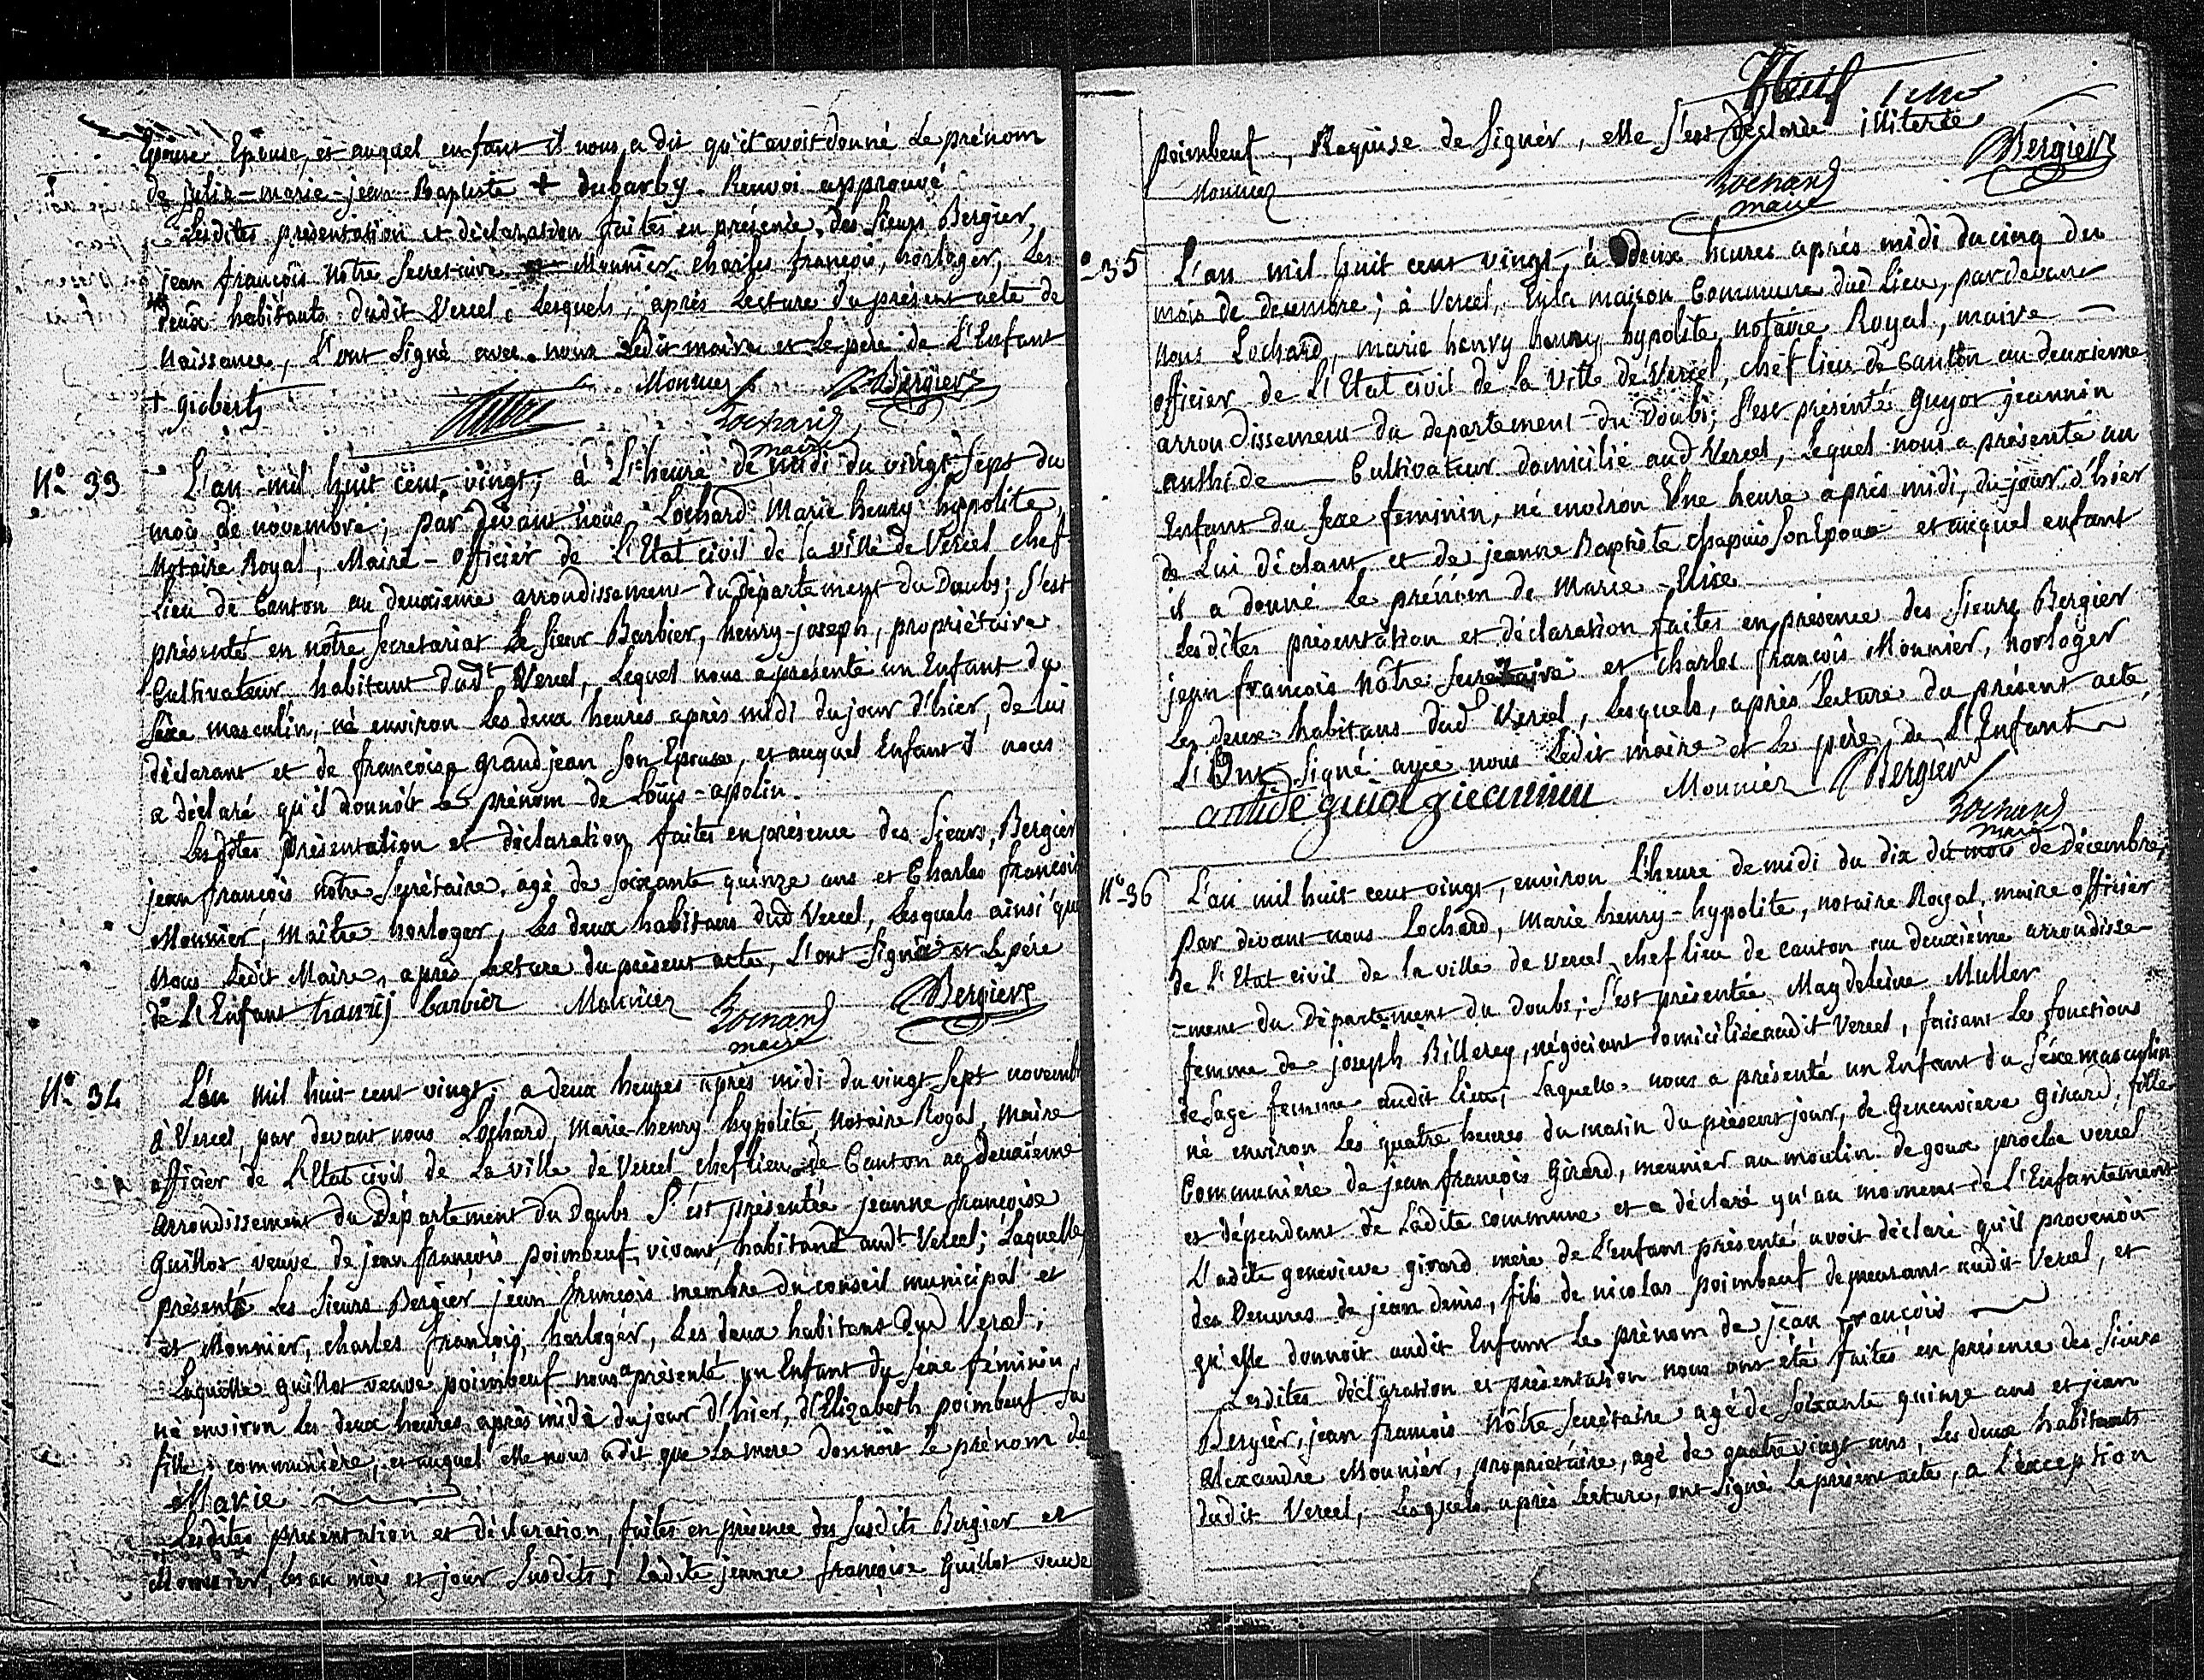 Epouse, et auquel enfant il nous a dit qu'il avoit donné Le prénom
de julie-marie-jean Baptiste + dubarby. Renvoi approuvé
Lesdites présentation et déclaration faites en présence des Sieurs Bergier,
jean françois notre Secretaire et Monnier charles françois, horloger, Les
deux habitants dudit Vercel, Lesquels, après Lecture du présent acte de
Naissance, L'ont Signé avec nous Ledit maire et Le père de L'Enfant
+
Monnier Bergier
Lochard
maire
N.º 33
L'an mil huit cent vingt, à L'heure de midi du vingt Sept du
mois de novembre; par devant nous Lochard Marie henry hyppolite,
Notaire Royal, Maire-officier de L'Etat civil de la ville de Vercel chef
Lieu de Canton au deuxieme arrondissement du Département du Doubs; S'est
présenté en nôtre Secretariat Le Sieur Barbier, henry-joseph, propriétaire
Cultivateur habitant dudt Vercel, Lequel nous a présenté un Enfant du
Séxe masculin, né environ Les deux heures après midi du jour d'hier, de lui
déclarant et de françoise grandjean Son Epouse, et auquel Enfant il nous
a déclaré qu'il donnoit Le prénom de Loüis-apolin.
Lesdites Présentation et déclaration faites en présence des Sieurs, Bergier
jean françois notre Secrétaire, agé de Soixante quinze ans et Charles françois
Monnier, maître horloger, Les deux habitans dud Vercel, Lesquels ainsi que
Nous Ledit Maire, après Lecture du présent acte, L'ont Signé et Le père
de L'Enfant barbier Monnier Lochard Bergier
maire
N.º 34
L'an mil huit cent vingt; a deux heures après midi du vingt Sept novemb
à Vercel, par devant nous Lochard, Marie-henry hypolite, Notaire Royal, Maire
officier de L'Etat civil de La ville de Vercel chef lieu de Canton au deuxieme
arrondissement du Département du Doubs S'est présentée jeanne françoise
Guillot veuve de jean françois poimbeuf, vivant habitant audt Vercel; Laquelle
présenté Les Sieurs Bergier jean françois membre du conseil municipal et
et Monnier, charles françois, horloger, Les deux habitans dud Vercel,
Laquelle guillot veuve poimbeuf nous a présenté un Enfant du Séxe féminin,
né environ Les deux heures après midi du jour d'hier, d'Elizabeth poimbeuf Sa
fille communière, et auquel elle nous a dit que La mere donnoit Le prénom de
Marie
Lesdites presentation et déclaration, faites en présence des Susdits Bergier et
Monnier, les an mois et jour Susdits; Ladite jeanne françoise Guillot veuve
poimbeuf, Requise de Signer, elle S'est déclarée illiterée
Monnier Lochard Bergier
maire
º 35
L'an mil huit cent vingt, à deux heures après midi du cinq du
mois de decembre; à Vercel, En la maison Commune dud Lieu, par devant
nous Lochard, marie henry henry hypolite, notaire Royal, maire
officier de L'Etat civil de La Ville de Vercel, chef lieu de canton au deuxieme
arrondissement du departement du Doubs; S'est présenté Guyot jeannin
anthide Cultivateur domicilié aud Vercel, Lequel nous a présenté un
Enfant du Sexe feminin, né environ Une heure après midi, du jour d'hier
de Lui déclant et de jeanne Baptiste chapuis Son Epouse et auquel enfant
il a donné Le prénom de Marie-Elise
Lesdites présentation et déclaration faites en présence des Sieurs Bergier
jean françois Nôtre Secretaire et charles françois Monnier, horloger
Les deux habitans dud Vercel, Lesquels, après Lecture du présent acte,
L'Ont Signé avec nous Ledit maire et Le père de L'Enfant
antide guiot gieannin Monnier Bergier
Lochard
maire
N.º 36
L'an mil huit cent vingt, environ L'heure de midi du dix du mois de Décembre,
par devant nous Lochard, marie henry-hypolite, notaire Royal, maire officier
de L'Etat civil de la ville de Vercel, chef lieu de canton au deuxième arrondisse-
=ment du Département du Doubs; S'est présentée Magdeleine Muller
femme de joseph Billerey, négociant domiciliée audit Vercel, faisant Les fonctions
de Sage femme audit Lieu, Laquelle nous a présenté un Enfant du Séxe masculin
né environ Les quatre heures du matin du présent jour, de Genevieve Girard, fille
Communière de jean françois Girard, meunier au moulin de goux proche vercel
et dépendant de Ladite commune et a déclaré qu'au moment de L'Enfantement
L'adite genevieve girard mère de L'enfant présenté avoit déclaré qu'il provenoit
des Oeuvres de jean denis, fils de nicolas poimbeuf demeurant audit Vercel, et
qu'elle donnoit audit Enfant Le prénom de jean françois
Lesdites déclaration et présentation nous ont été faites en présence des Sieurs
Bergier, jean francois Nôtre Secrétaire agé de Soixante quinze ans et jean
Alexandre Monnier, propriétaire, agé de quatre vingt ans, Les deux habitants
dudit Vercel, Lesquels après Lecture, ont Signé Le présent acte, a L'exception